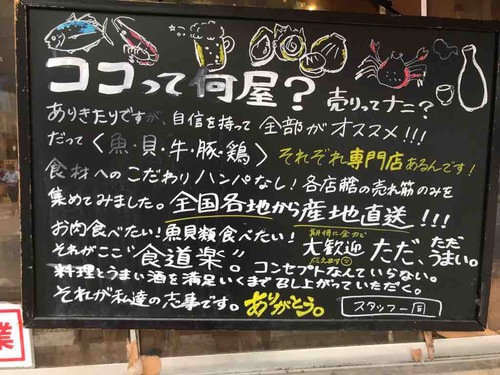 ココって何屋?
売りってナニ?
ありきたりですが、自信を持って全部がオススメ!!!
だって〈魚・貝・牛・豚・鶏〉それぞれ専門店あるんです!
食材へのこだわりハンパなし!各店舗の売れ筋のみを
集めてみました。全国各地から産地直送!!!
お肉食べたい!魚貝類食べたい!
期待に全力で
応えます
大歓迎
ただ、ただ
うまい。
それがここ"食道楽"。コンセプトなんていらない。
料理とうまい酒を満足いくまで召し上がっていただく。
それが私達の志事です。ありがとう。
スタッフ一同
業